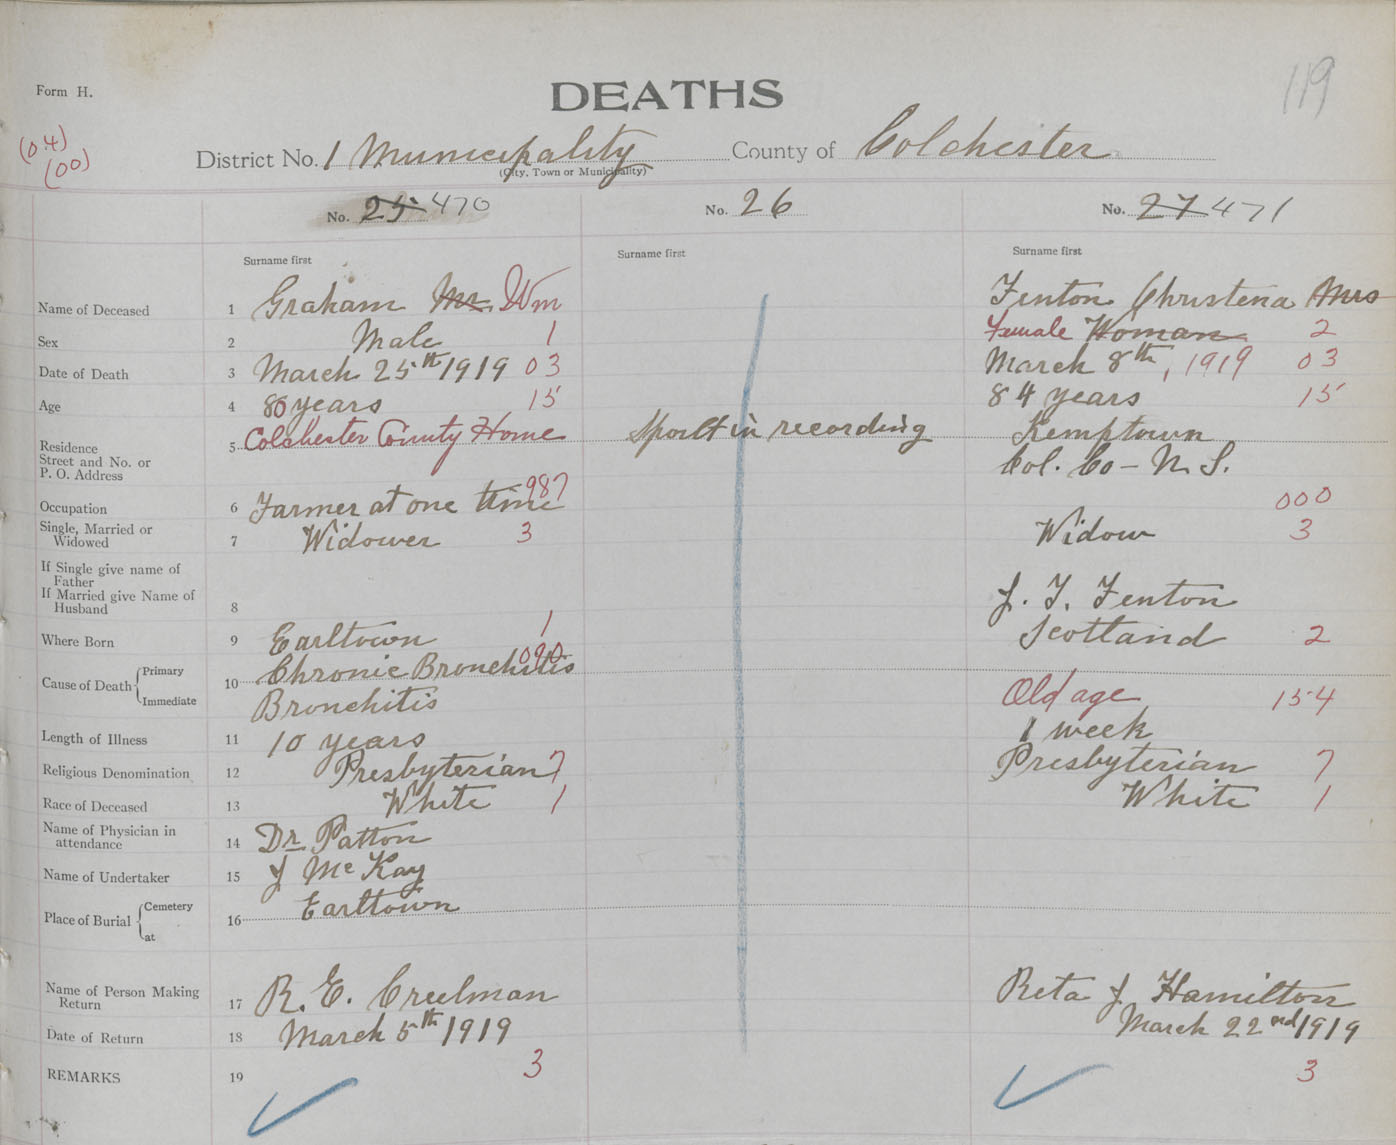 119
Form H.
DEATHS
(04)
(00)
District No. 1 Municipality County of Colchester
(City, Town or Municipality)
No. 25 470
No. 26
No. 27 471
Surname first
Surname first
Surname first
Name of Deceased 1 Graham Mr. Wm Fenton Christena Mrs
Sex 2 Male 1 Female Woman 2
Date of Death 3 March 25th 1919 03 March 8th, 1919 03
Age 4 80 years 15 84 years 15
Residence
Street and No. or
P. O. Address
5 Colchester County Home
Spoilt in recording
Kemptown
Col. Co - N. S.
Occupation 6 Farmer at one time 987 000
Single, Married or
Widowed
7 Widower 3 Widow 3
If Single give name of
Father
If Married give Name of
Husband
8
J. F. Fenton
Where Born 9 Earltown 1 Scotland 2
Cause of Death Primary
Immediate
10 Chronic Bronchitis 090
Bronchitis
Old age 154
Length of Illness 11 10 years 1 week
Religious Denomination 12 Presbyterian 7 Presbyterian 7
Race of Deceased 13 White 1 White 1
Name of Physician in
attendance
14 Dr Patton
Name of Undertaker 15 J McKay
Place of Burial Cemetery
at
16 Earltown
Name of Person Making
Return
17 R. E. Creelman Reta J Hamilton
Date of Return 18 March 5th 1919 March 22nd 1919
REMARKS 19 3 3